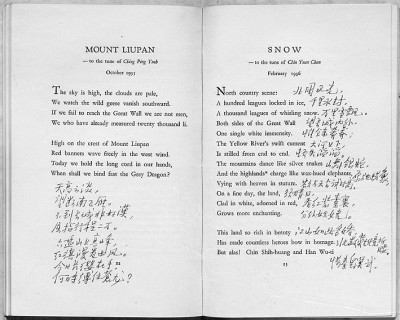 MOUNT LIUPAN
— to the tune of Ching Ping Yueh
October 1935
The sky is high, the clouds are pale,
We watch the wild geese vanish southward.
If we fail to reach the Great Wall we are not men,
We who have already measured twenty thousand li.
High on the crest of Mount Liupan
Red banners wave freely in the west wind.
Today we hold the long cord in our hands,
When shall we bind fast the Grey Dragon?
天高云淡,
望断南飞雁。
不到长城非好汉,
屈指行程二万。
六盘山上高峰,
红旗漫卷西风。
今日长缨在手
何时缚住苍龙?
22
SNOW
— to the tune of Chin Yuan Chun
February 1936
North country scene: 北国风光,
A hundred leagues locked in ice, 千里冰封,
A thousand leagues of whirling snow. 万里雪飘。
Both sides of the Great Wall 望长城内外,
One single white immensity. 惟余莽莽;
The Yellow River's swift current 大河上下,
Is stilled from end to end. 顿失滔滔。
The mountains dance like silver snakes 山舞银蛇,
And the highlands* charge like wax-hued elephants, 原驰蜡象,
Vying with heaven in stature. 欲与天公试比高。
On a fine day, the land, 须晴日,
Clad in white, adorned in red, 看红装素裹,
Grows more enchanting. 分外妖娆。
This land so rich in beauty 江山如此多娇,
Has made countless heroes bow in homage.
But alas! Chin Shih-huang and Han Wu-ti
惜秦皇汉武,
23